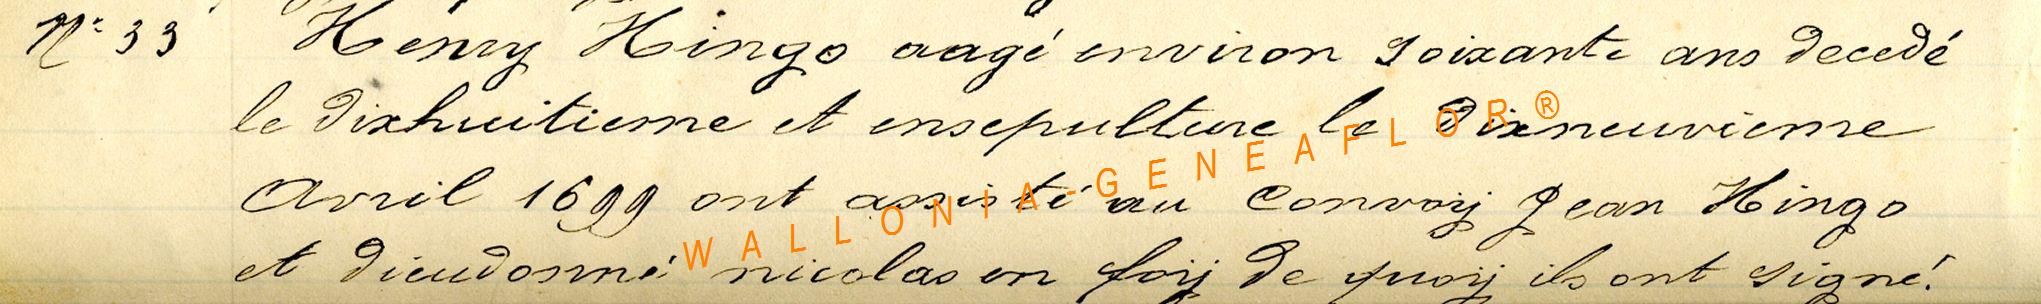 N° 33 Henry Hingo aagé environ soixante ans decedé
le dixhuitieme et ensepulture le dixneuvieme
Avril 1699 ont assisté au Convoij Jean Hingo
et dieudonné nicolas en foij de quoij ils ont signé.
WALLONIA-GENEAFLOR®